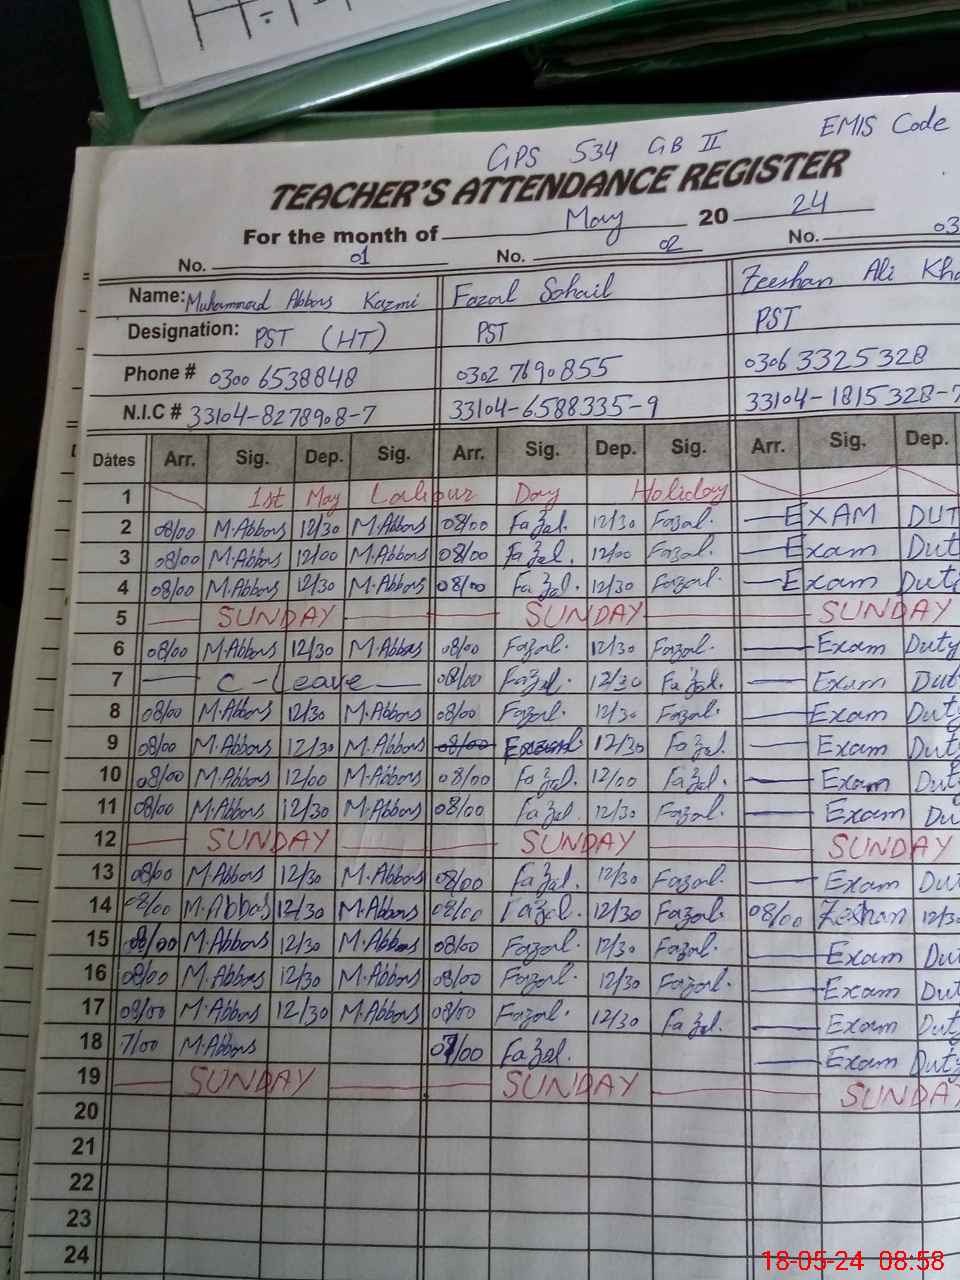 GPS 534 GB II EMIS Code
TEACHER'S ATTENDANCE REGISTER
For the month of May 20 24
No. 01 No. 02 No. 03
Name: Muhammad Abbas Kazmi Fazal Sohail Zeeshan Ali Kha
Designation: PST (HT) PST PST
Phone # 0300 6538848 0302 7690855 0306 3325328
N.I.C # 33104-8278908-7 33104-6588335-9 33104-1815328-7
Dates Arr. Sig. Dep. Sig. Arr. Sig. Dep. Sig. Arr. Sig. Dep.
1 1st May Labour Day Holiday
2 08/00 M.Abbas 12/30 M.Abbas 08/00 Fazal. 12/30 Fazal. EXAM DUT
3 08/00 M.Abbas 12/00 M.Abbas 08/00 Fazal. 12/00 Fazal. Exam Dut
4 08/00 M.Abbas 12/30 M.Abbas 08/00 Fazal. 12/30 Fazal. Exam Duty
5 SUNDAY SUNDAY SUNDAY
6 08/00 M.Abbas 12/30 M.Abbas 08/00 Fazal. 12/30 Fazal. Exam Duty
7 C-Leave 08/00 Fazal. 12/30 Fazal. Exam Dut
8 08/00 M.Abbas 12/30 M.Abbas 08/00 Fazal. 12/30 Fazal. Exam Duty
9 08/00 M.Abbas 12/30 M.Abbas 08/00 12/30 Fazal. Exam Duty
10 08/00 M.Abbas 12/00 M.Abbas 08/00 Fazal. 12/00 Fazal. Exam Duty
11 08/00 M.Abbas 12/30 M.Abbas 08/00 Fazal. 12/30 Fazal. Exam Du
12 SUNDAY SUNDAY SUNDAY
13 08/00 M.Abbas 12/30 M.Abbas 08/00 Fazal. 12/30 Fazal. Exam Dut
14 08/00 M.Abbas 12/30 M.Abbas 08/00 Fazal. 12/30 Fazal. 08/00 Zeshan 12/30
15 08/00 M.Abbas 12/30 M.Abbas 08/00 Fazal. 12/30 Fazal. Exam Dut
16 08/00 M.Abbas 12/30 M.Abbas 08/00 Fazal. 12/30 Fazal. Exam Dut
17 08/00 M.Abbas 12/30 M.Abbas 08/00 Fazal. 12/30 Fazal. Exam Dut
18 7/00 M.Abbas 07/00 Fazal. Exam Duty
19 SUNDAY SUNDAY SUNDAY
20
21
22
23
24
18-05-24 08:58